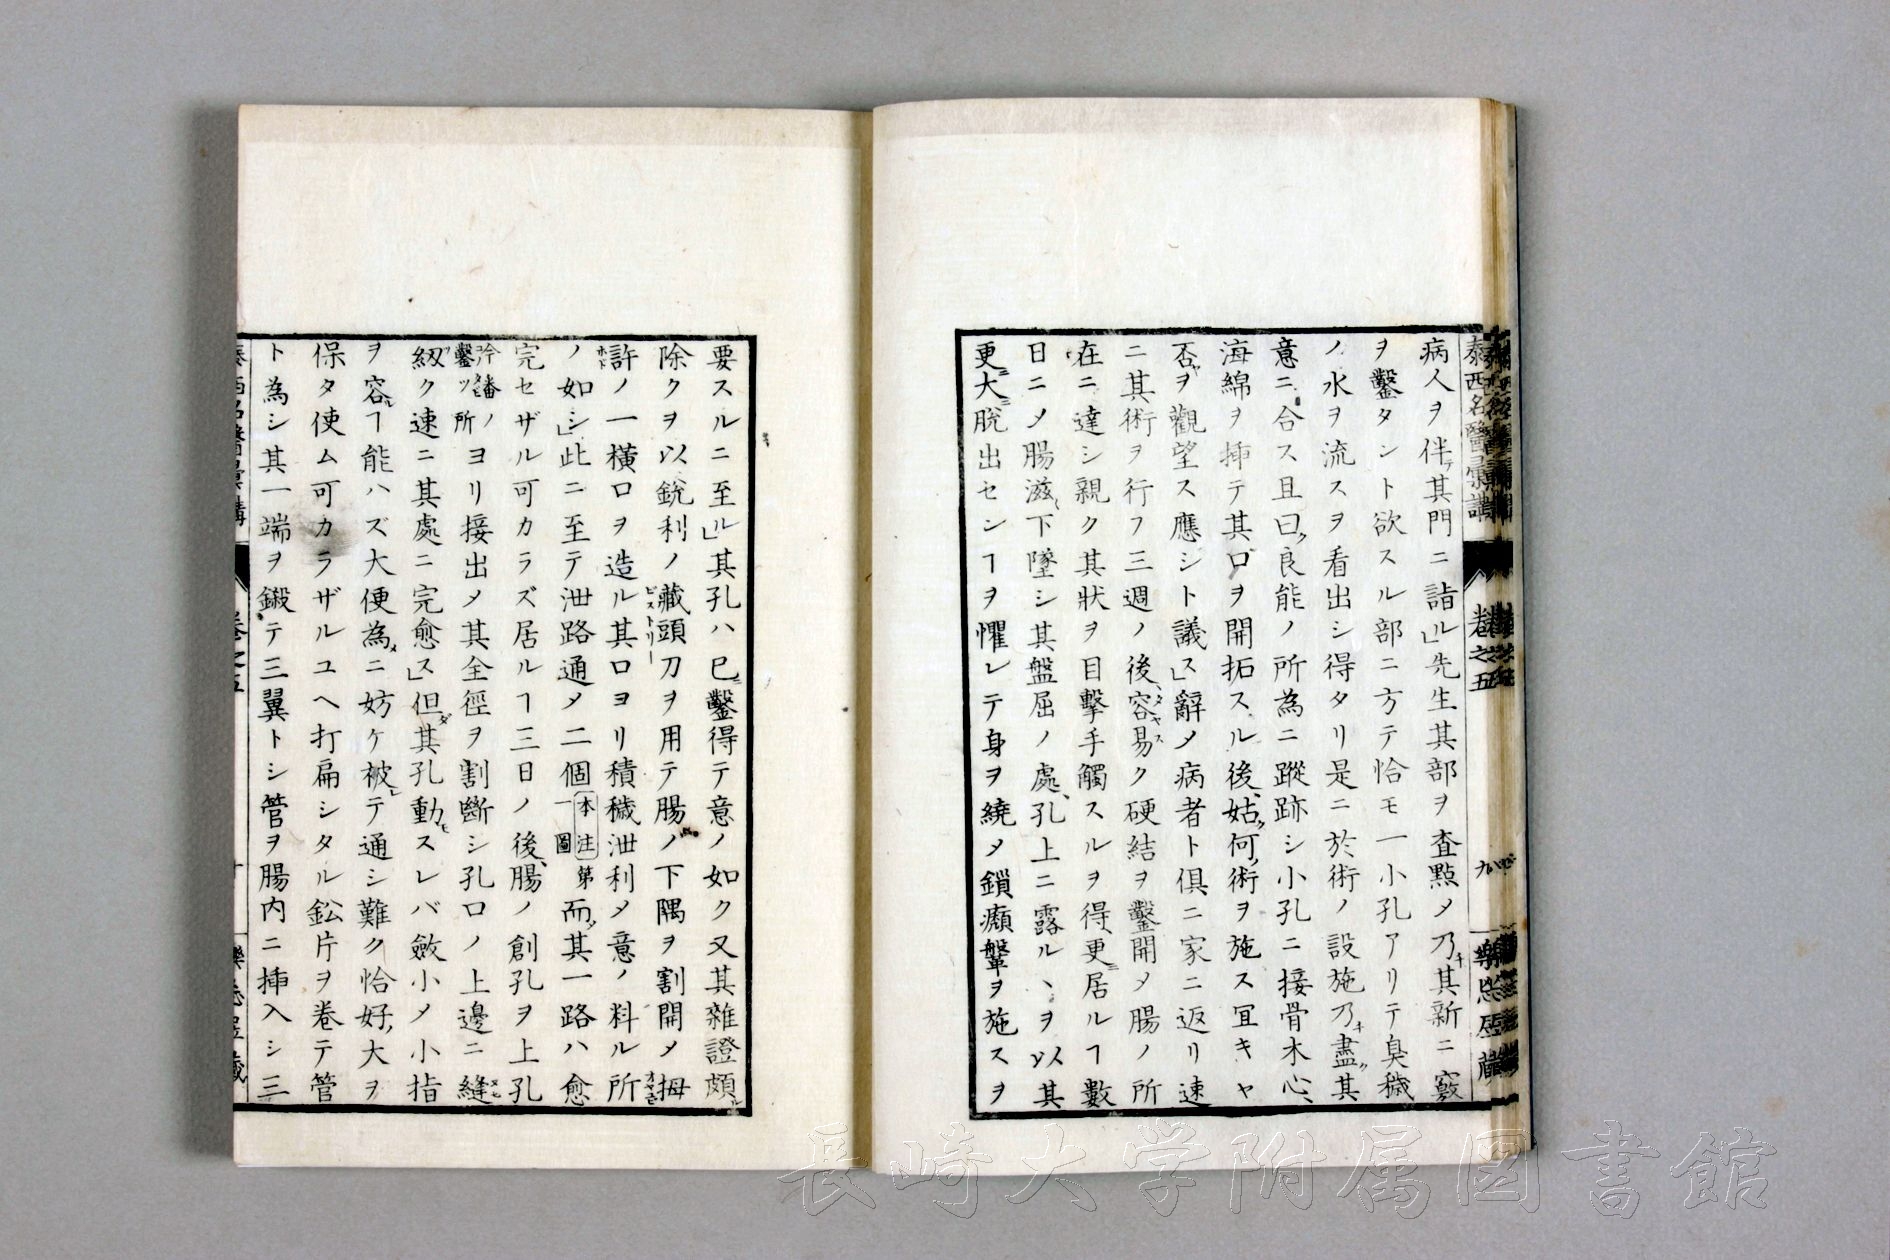 泰西名醫彙講
卷之五
九
病人ヲ伴テ其門ニ詣ル」先生其部ヲ査點メ乃キ其新ニ竅
ヲ鑿タント欲スル部ニ方テ恰モ一小孔アリテ臭穢
ノ水ヲ流スヲ看出シ得タリ是ニ於術ノ設施乃キ盡ク其
意ニ合ス且曰ク良能ノ所為ニ蹤跡シ小孔ニ接骨木心、
海綿ヲ挿テ其口ヲ開拓スル後、姑ク何ノ術ヲ施ス冝キヤ
否ヤヲ觀望ス應シト議ス」辭メ病者ト俱ニ家ニ返リ速
ニ其術ヲ行フ三週ノ後、容易ク硬結ヲ鑿開メ腸ノ所
在ニ達シ親ク其狀ヲ目擊手觸スルヲ得、更ニ居ルヿ數
日ニメ腸滋〻下墜シ其盤屈ノ處、孔上ニ露ル、ヲ以其
更ニ大ニ脫出センヿヲ懼レテ身ヲ繞メ鎖癩鞶ヲ施スヲ
要スルニ至ル」其孔ハ已ニ鑿得テ意ノ如ク又其雜證頗ル
除クヲ以銳利ノ藏頭刀ヲ用テ腸ノ下隅ヲ割開メ拇
許ノ一橫口ヲ造ル其口ヨリ積穢泄利メ意ノ料ル所
ノ如シ」此ニ至テ泄路通メ二個本注第一圖而ノ其一路ハ愈
完セザル可カラズ居ルヿ三日ノ後、腸ノ創孔ヲ上孔
鑿ッ所ノヨリ接出メ其全徑ヲ割斷シ孔口ノ上邊ニ縫
級ク速ニ其處ニ完愈ス」但其孔動モスレバ斂小メ小指
ヲ容ルヿ能ハズ大便為メニ妨ケ被レテ通シ難ク恰好ノ大ヲ
保タ使ム可カラザルユヘ打扁シタル鈆片ヲ卷テ管
ト為シ其一端ヲ鍛テ三翼トシ管ヲ腸內ニ挿入シ三
泰西名醫彙講
卷之五
十